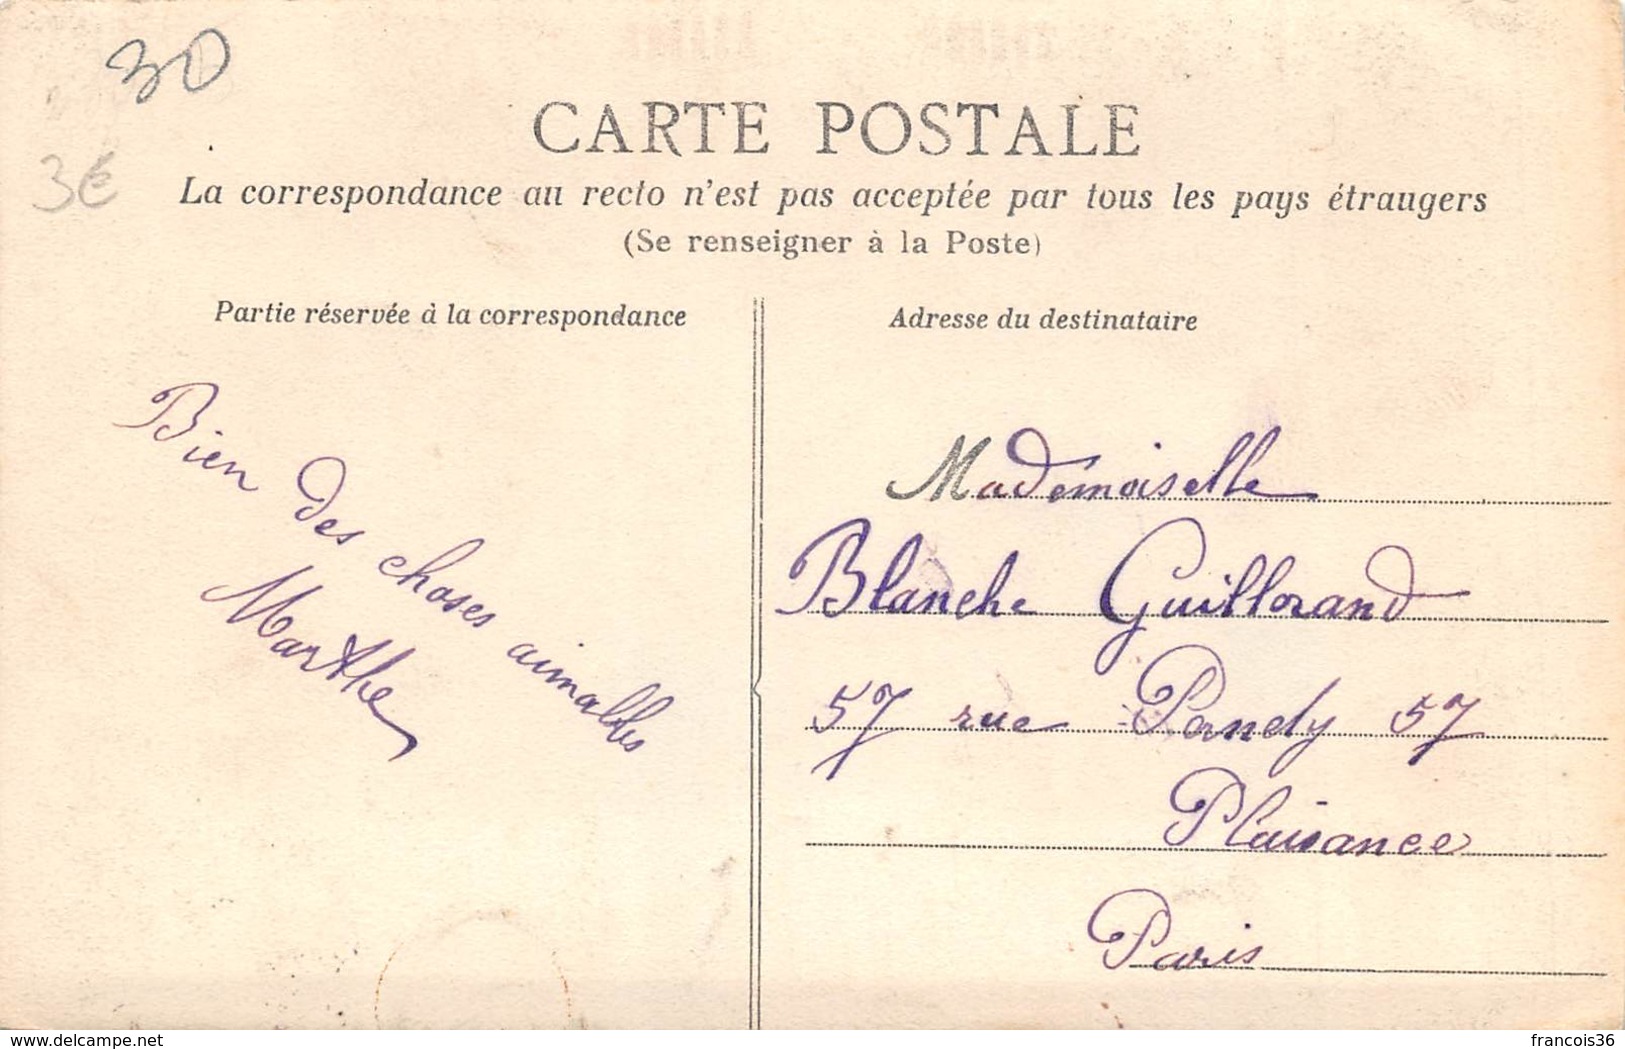 30
3€
CARTE POSTALE
La correspondance au recto n'est pas acceptée par tous les pays étrangers
(Se renseigner à la Poste)
Partie réservée à la correspondance
Bien des choses aimables
Marthe
Adresse du destinataire
Mademoiselle
Blanche Guillorand
57 rue Pernety 57
Plaisance
Paris
delcampe.net
francois36